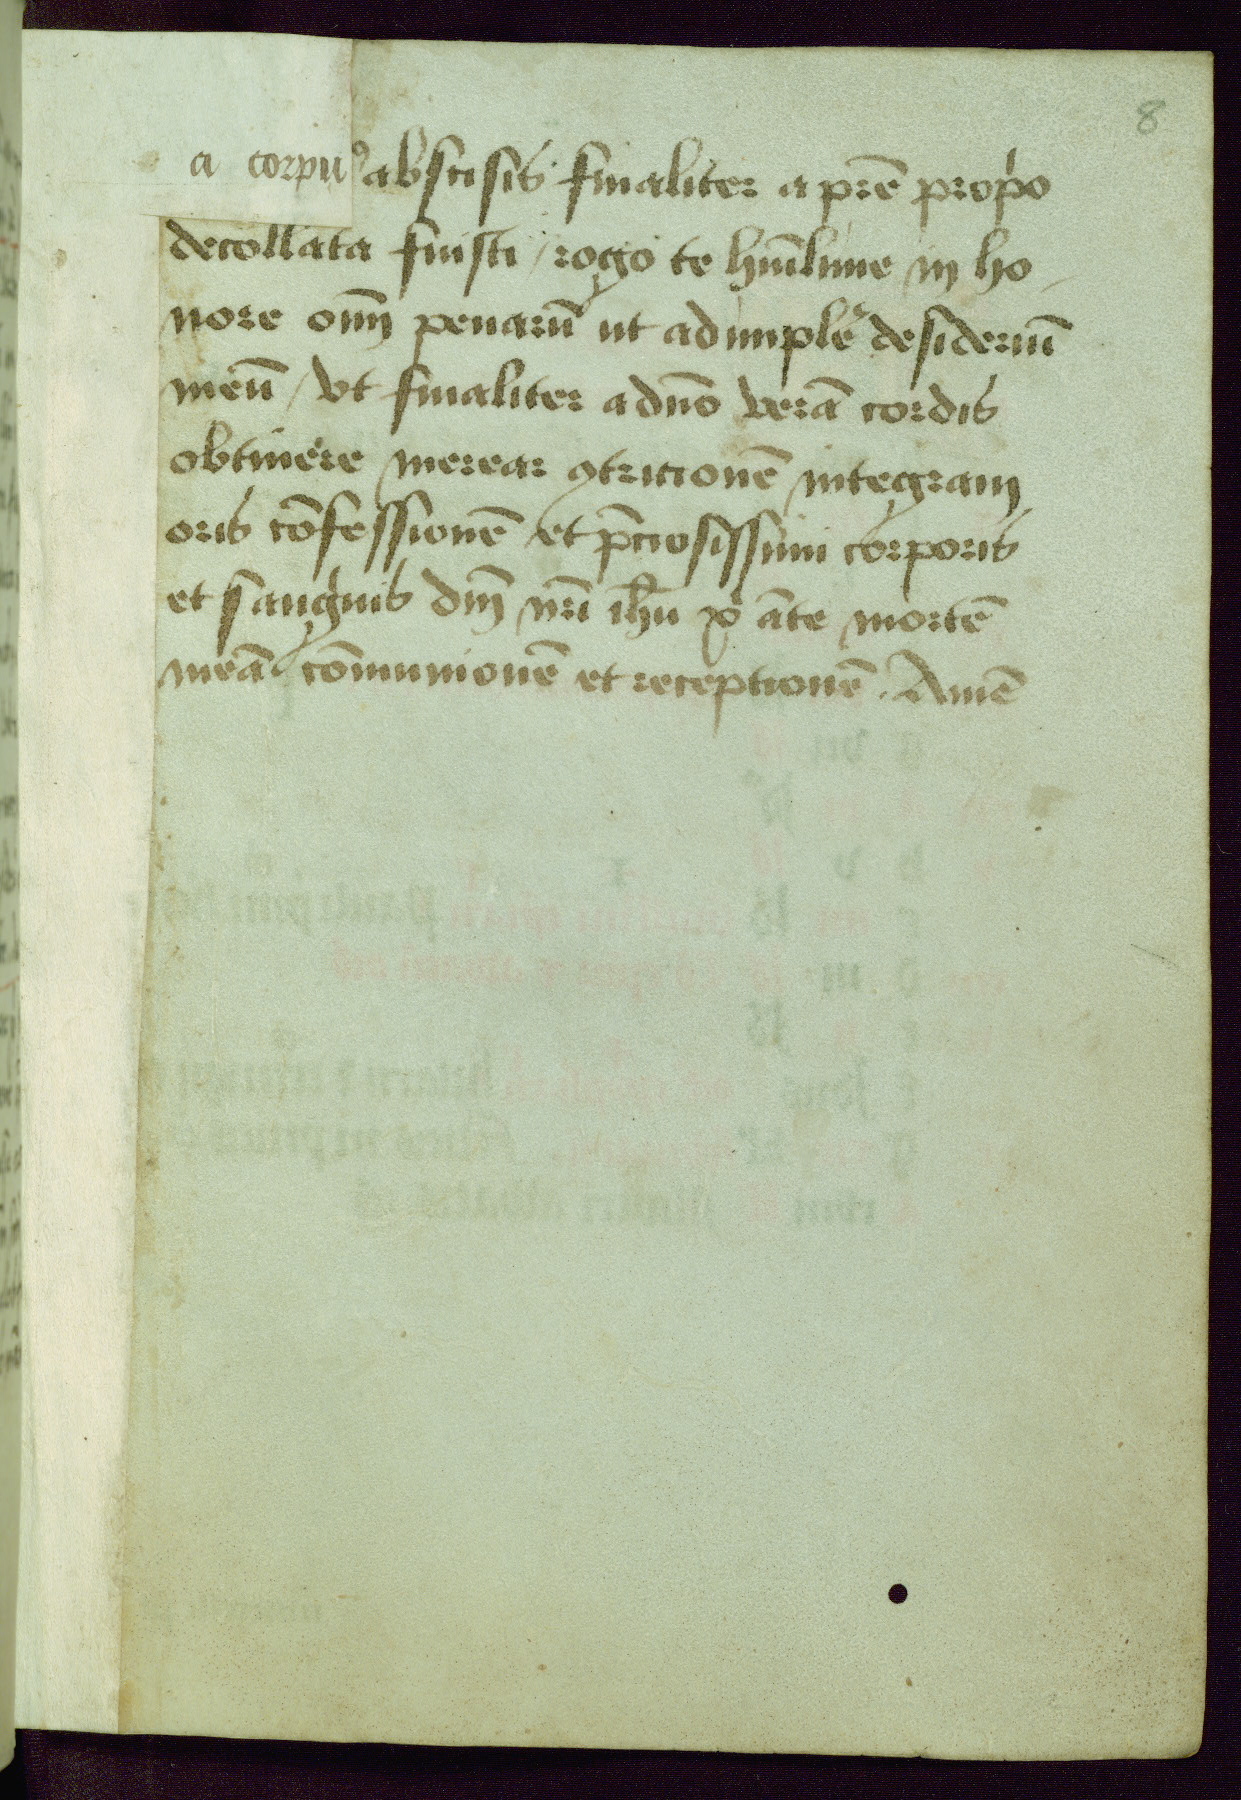 8
a corpuꝰ abscisis finaliter a pr̄e prop̍o
decollata fuisti / rogo te hūīlime in ho
nore oīm penarū ut adimple᷑ desideriū
meū / vt finaliter a dn̄o verā cordis
obtinere merear ꝯtricionē integram
oris cōfessionē et p̄ciosissimi corporis
et sang̍nis dn̄i nr̄i ih̄u xp̍ āte mortē
meā cōmunionē et receptionē . Amē